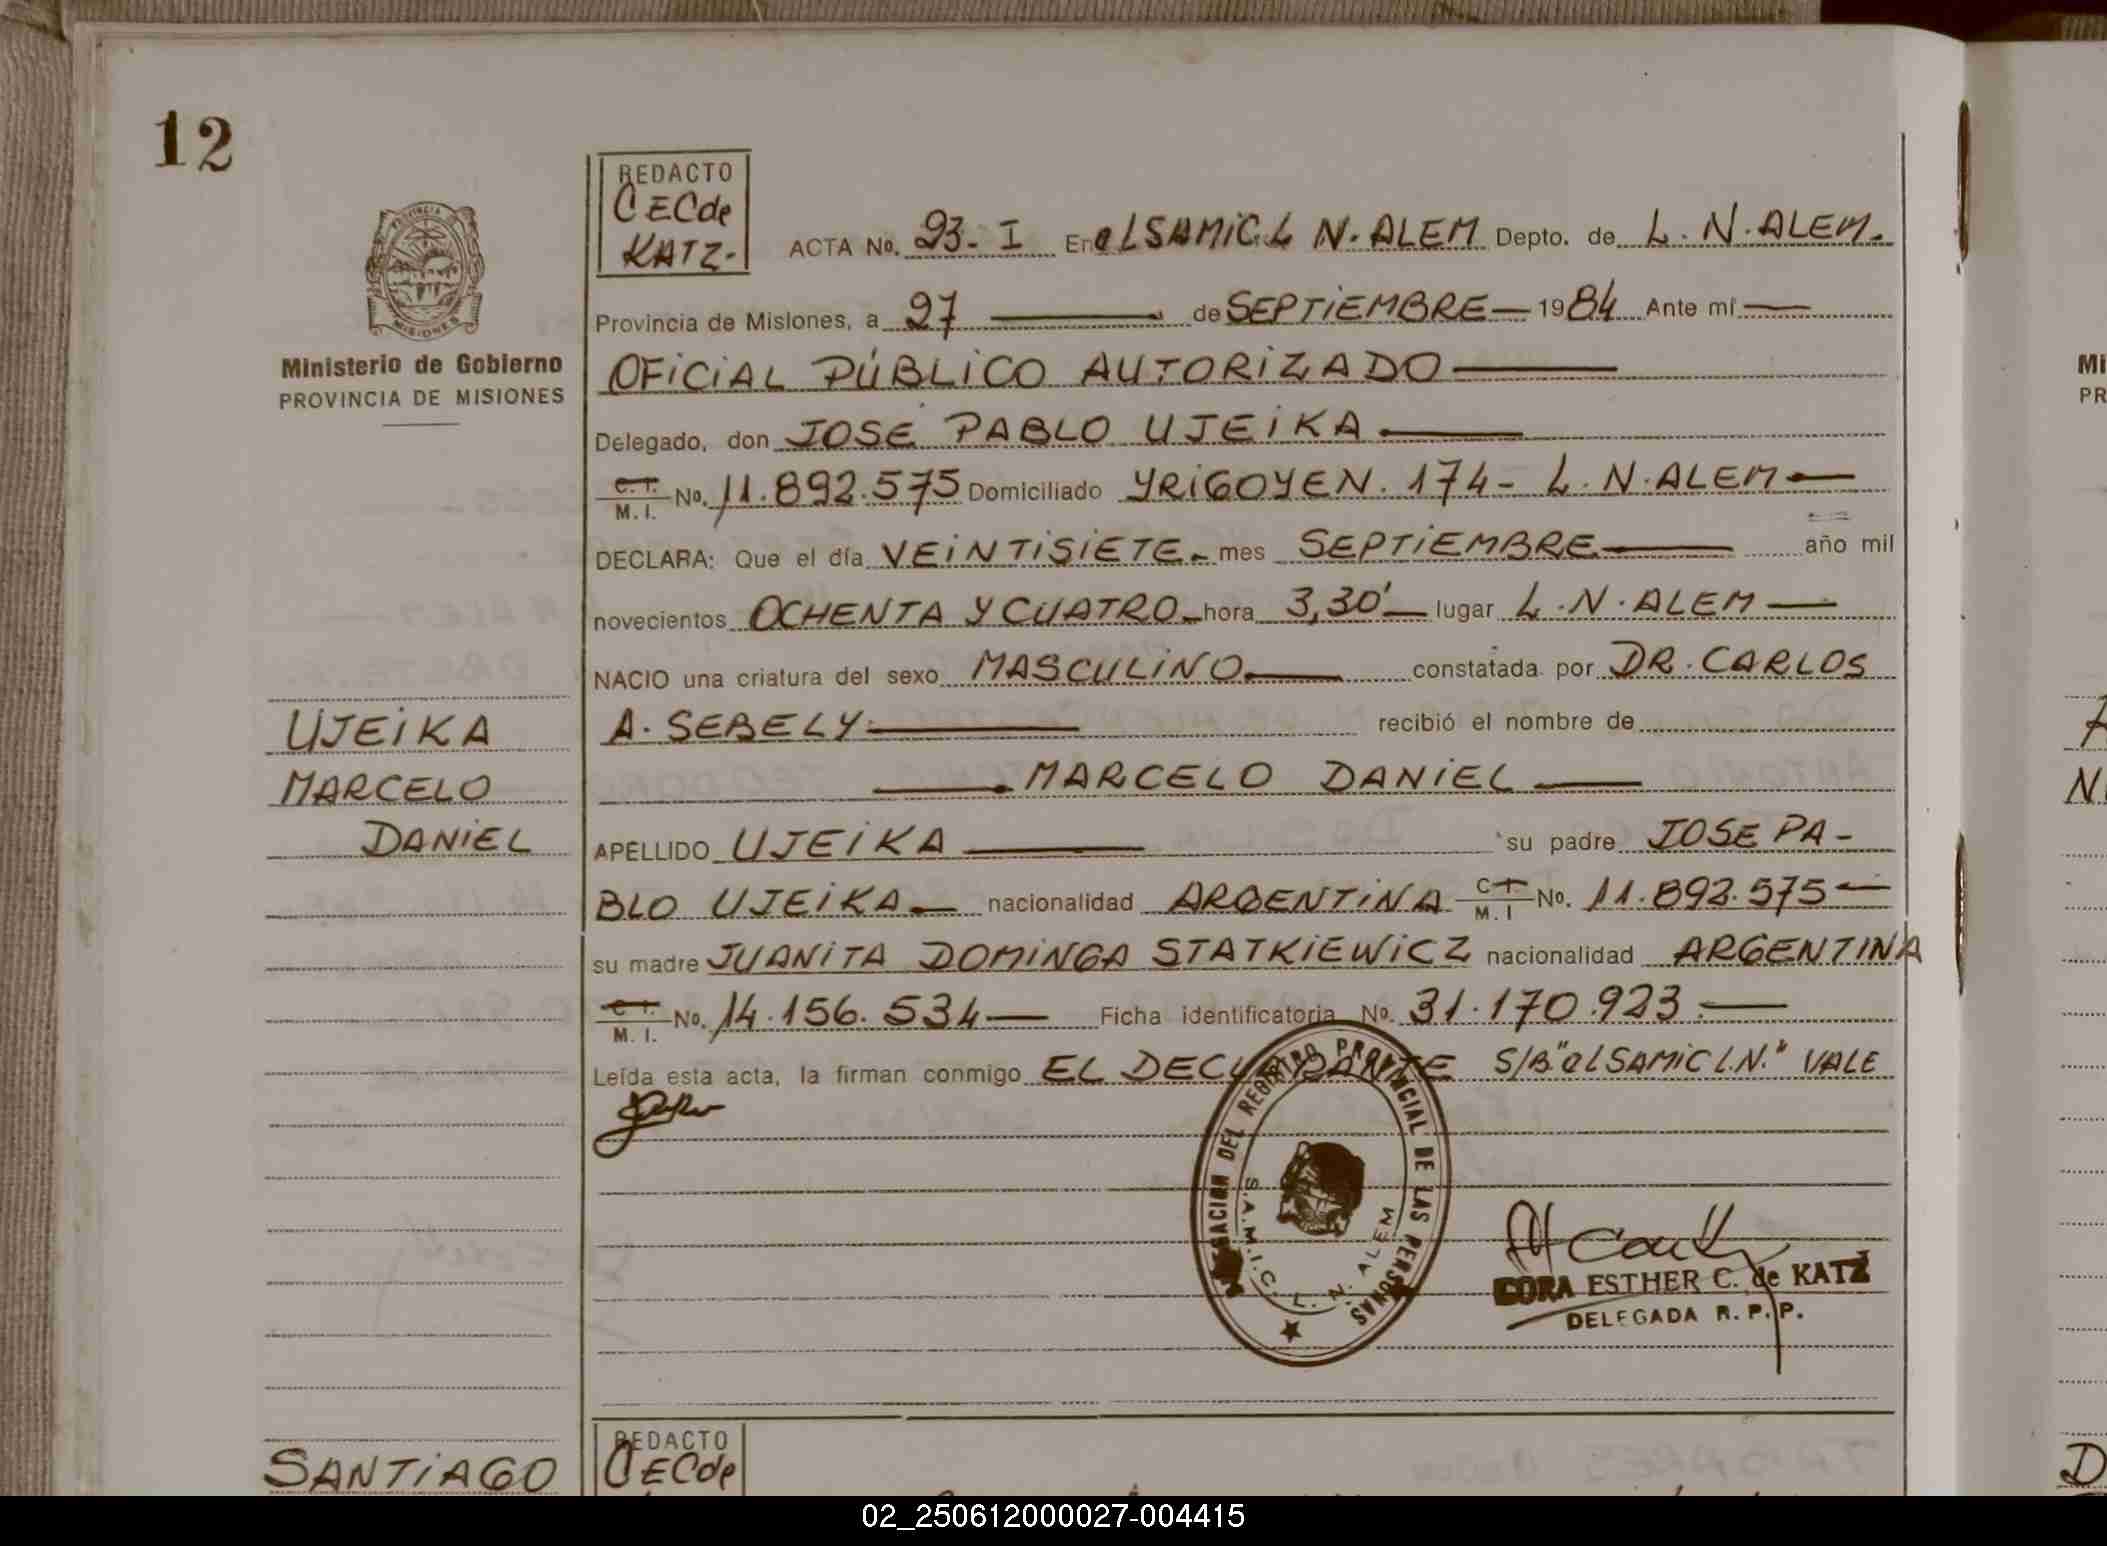 12
PROVINCIA DE
MISIONES
Ministerio de Gobierno
PROVINCIA DE MISIONES
REDACTO
CECde
KATZ.
ACTA No. 93. I En el SAMIC. L N. ALEM Depto. de L. N. ALEM.
Provincia de Misiones, a 27 de SEPTIEMBRE 1984 Ante mí
OFICIAL PÚBLICO AUTORIZADO
Delegado, don JOSÉ PABLO UJEIKA
C. I.
M. I. No. 11.892.575 Domiciliado YRIGOYEN. 174 - L. N. ALEM
DECLARA: Que el día VEINTISIETE mes SEPTIEMBRE año mil
novecientos OCHENTA Y CUATRO hora 3,30' lugar L. N. ALEM
NACIO una criatura del sexo MASCULINO constatada por DR. CARLOS
A. SEBELY recibió el nombre de
MARCELO DANIEL
APELLIDO UJEIKA su padre JOSE PA-
BLO UJEIKA nacionalidad ARGENTINA C I M. I No. 11.892.575
su madre JUANITA DOMINGA STATKIEWICZ nacionalidad ARGENTINA
C I.
M. I. No. 14.156.534 Ficha identificatoria No. 31.170.923.
Leída esta acta, la firman conmigo EL DECLARANTE S/B "el SAMIC L.N." VALE
UJEIKA
MARCELO
DANIEL
DELEGACION DEL REGISTRO PROVINCIAL DE LAS PERSONAS
S.A.M.I.C. L. N. ALEM
CORA ESTHER C. de KATZ
DELEGADA R. P. P.
SANTIAGO
REDACTO
CECde
Mi
PR
A
N
D
02_250612000027-004415